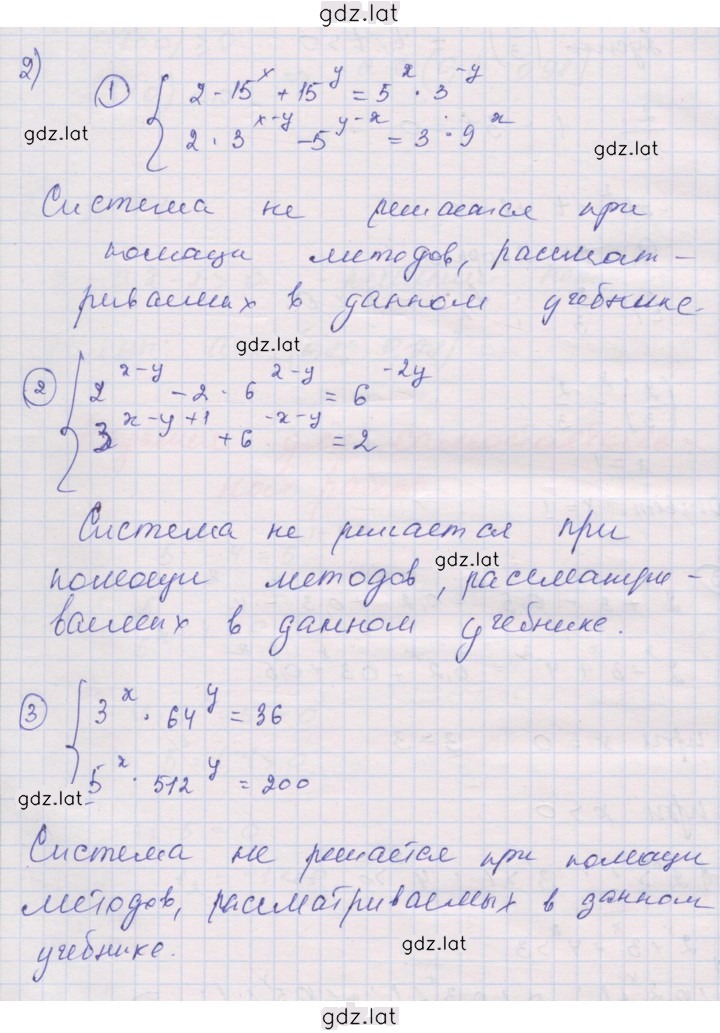 gdz.lat
2)
① { 2 - 15^x + 15^y = 5^x · 3^{-y}
2 · 3^{x-y} - 5^{y-x} = 3 · 9^x
gdz.lat
gdz.lat
Система не решается при
помощи методов, рассмат-
риваемых в данном учебнике.
gdz.lat
② { 2^{x-y} - 2 · 6^{x-y} = 6^{-2y}
3^{x-y+1} + 6^{-x-y} = 2
Система не решается при
gdz.lat
помощи методов, рассматри-
ваемых в данном учебнике.
③ { 3^x · 64^y = 36
5^x · 512^y = 200
gdz.lat
Система не решается при помощи
методов, рассматриваемых в данном
учебнике.
gdz.lat
gdz.lat